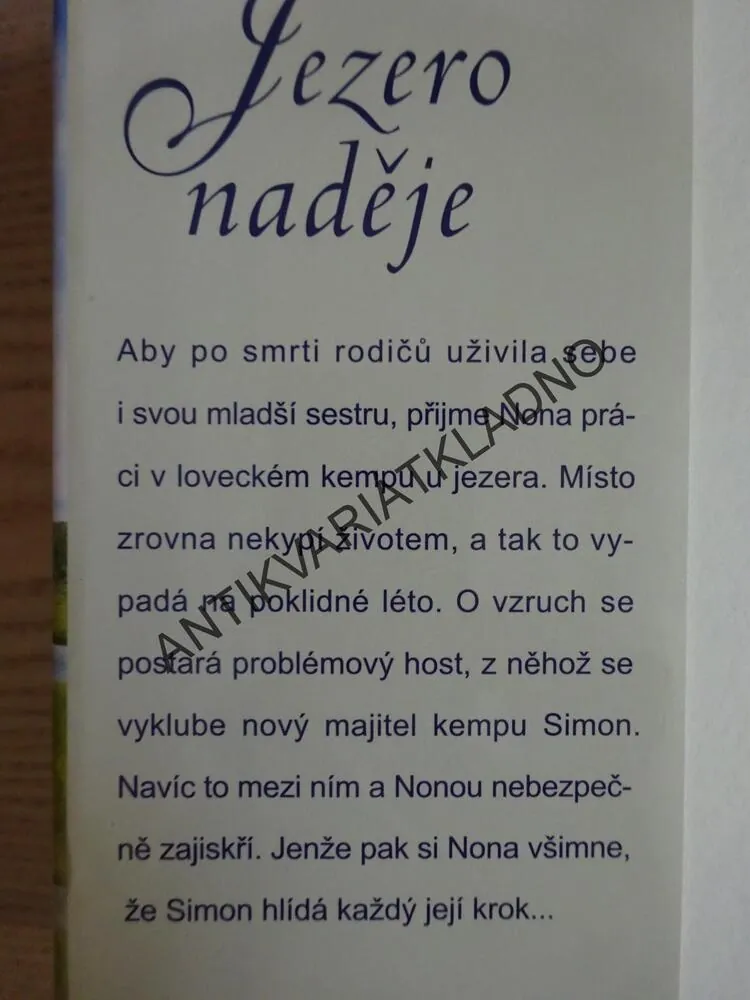 Jezero
naděje
Aby po smrti rodičů uživila sebe
i svou mladší sestru, přijme Nona prá-
ci v loveckém kempu u jezera. Místo
zrovna nekypí životem, a tak to vy-
padá na poklidné léto. O vzruch se
postará problémový host, z něhož se
vyklube nový majitel kempu Simon.
Navíc to mezi ním a Nonou nebezpeč-
ně zajiskří. Jenže pak si Nona všimne,
že Simon hlídá každý její krok...
ANTIKVARIATKLADNO